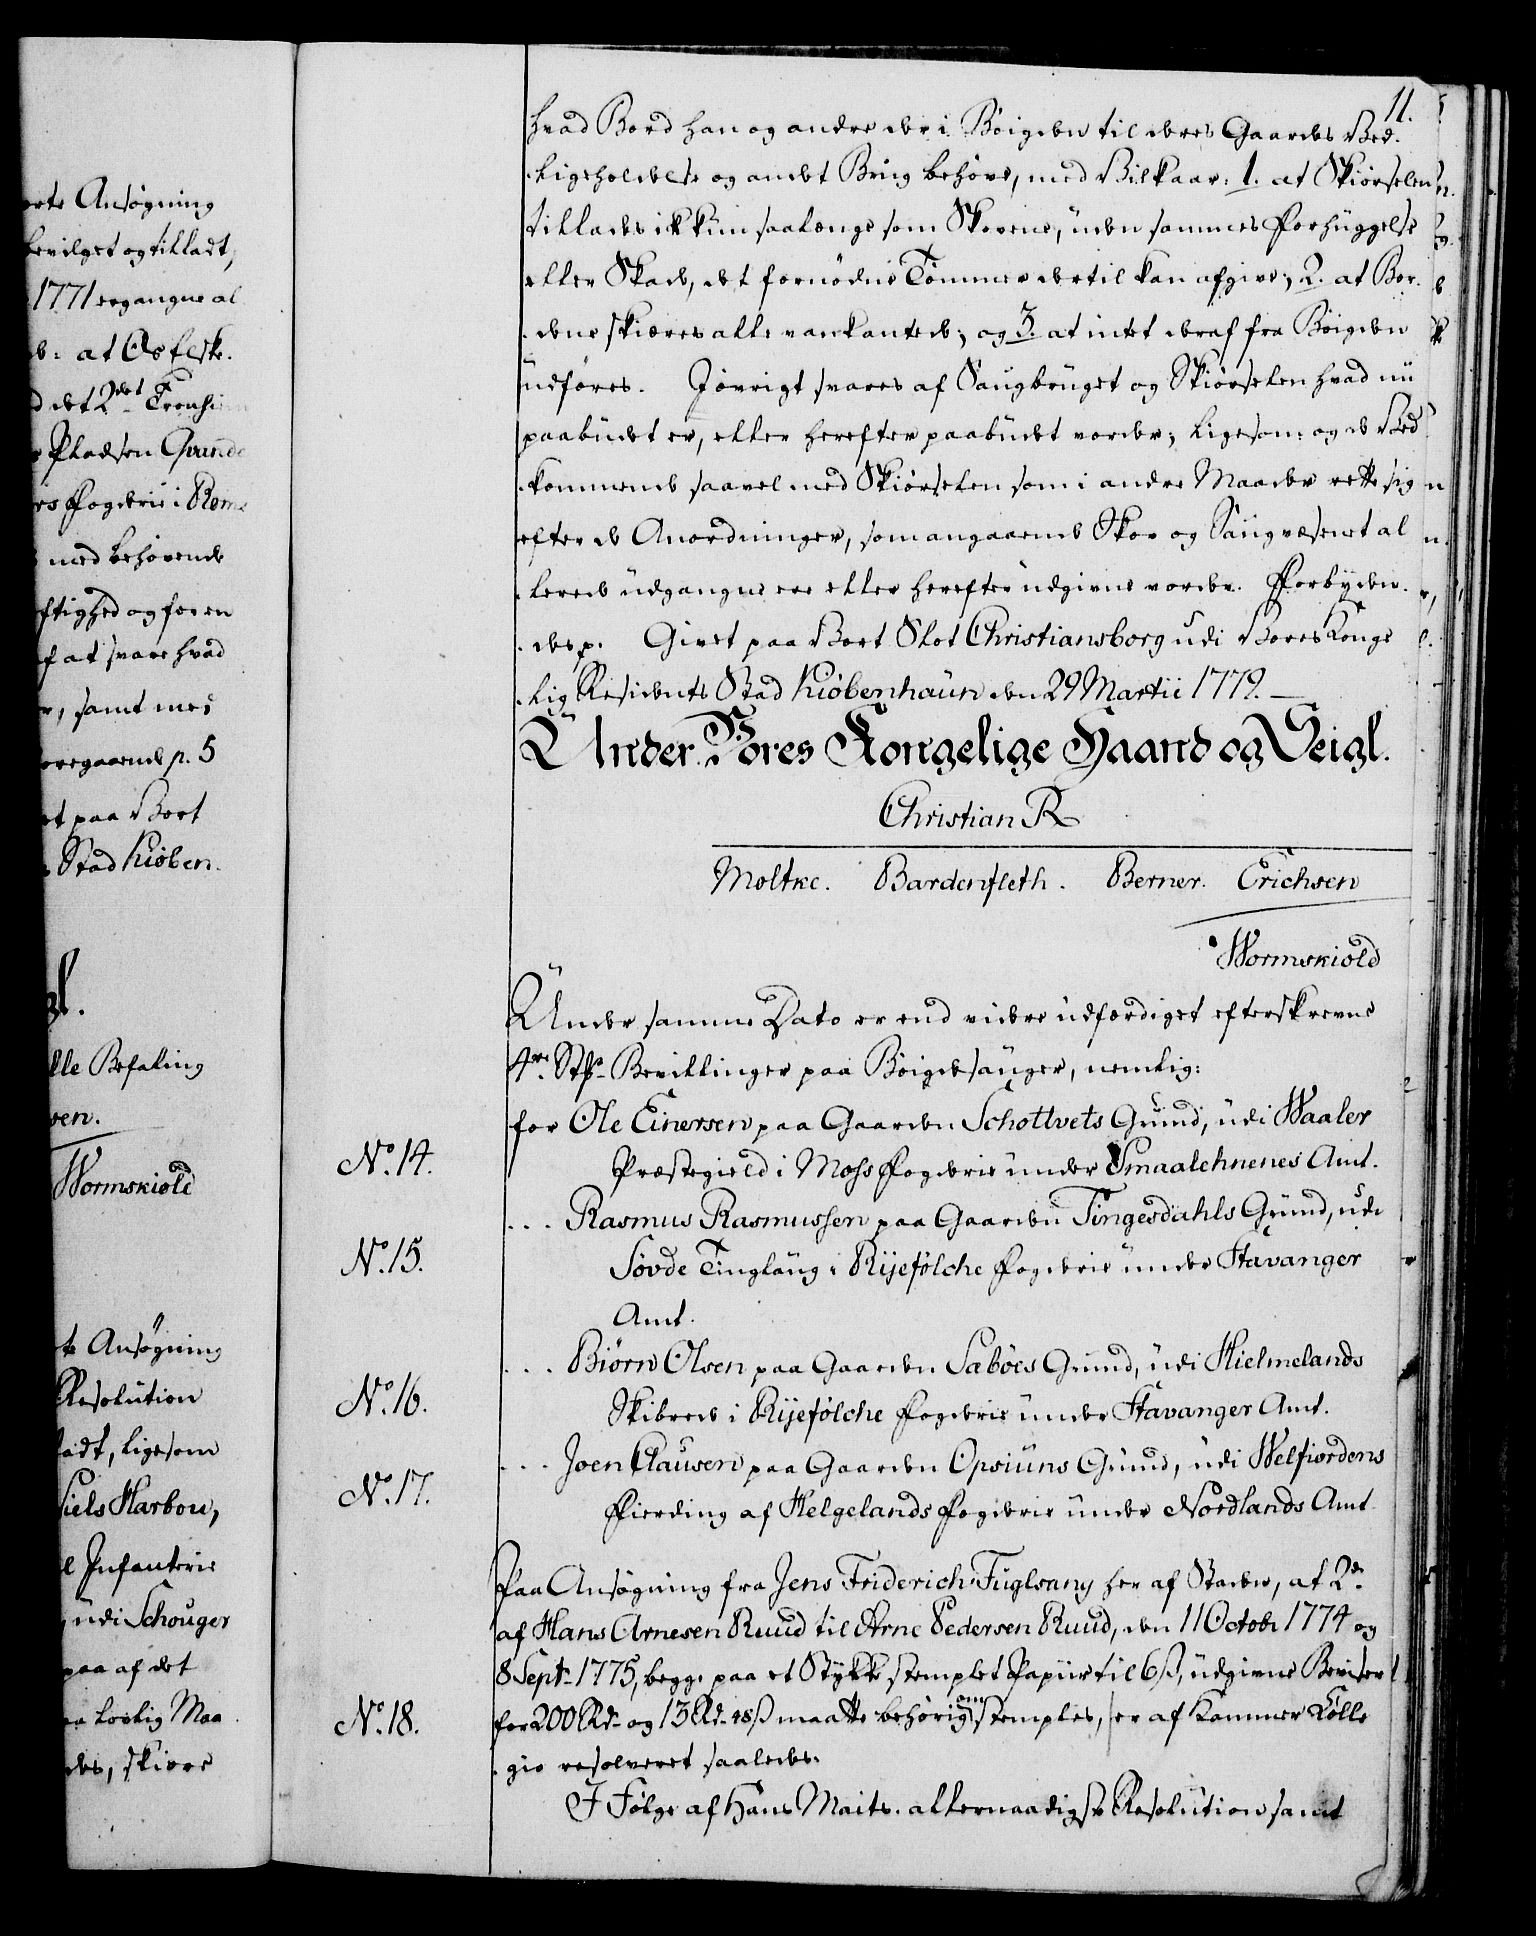 orte Ansøgning
bevilget og tilladt,
1771 ergangne al
at Østeske.
d det 2det Tronhiem
Pladsen Qvande
rs Fogderie i Roms
med behøvende
ftighed og for en
f at svare hvad
r, samt med
foregaaende p. 5
et paa Vort
Stad Kiøben.
gl.
lle Befaling
sen.
Wormskiold
te Ansøgning
Resolution
ladt, ligesom
Niels Harbou,
l Infanterie
udi Schouger
paa af det
aa lovlig Maa
des, skiære
11.
hvad Bord han og andre der i Bøigden til deres Gaardes Ved.
ligeholdelse og andet Brug behøve, med Vilkaar: 1. at Skiørselen
tillades ikkun saalænge som Skovene, uden sammes Forhuggelse
eller Skade, det fornødne Tømmer dertil kan afgive; 2. at Bor.
dene skiæres alle vankantede; og 3. at intet deraf fra Bøigden
udføres. Iøvrigt svares af Saugbruget og Skiørselen hvad nu
paabudet er, eller herefter paabudet vorder; ligesom og de Ved
kommende saavel med Skiørselen som i andre Maader rette sig
efter de Anordninger, som angaaende Skov og Saugvæsenet al
lerede udgangne ere eller herefter udgivne vorder. Forbyden.
des p. Givet paa Vort Slot Christiansborg udi Vores Konge
lig Residents Stad Kiøbenhaun den 29 Martii 1779.
Under Vores Kongelige Haand og Seigl.
Christian R
Moltke. Bardenfleth. Berner. Erichsen
Wormskiold
Under samme Dato er end videre udfærdiget efterskrevne
4re Stk Bevillinger paa Bøigdesauger, nemlig:
No. 14.
for Ole Einersen paa Gaarden Schottvets Grund, udi Waaler
Præstegield i Moss Fogderie under Smaalehnenes Amt.
No. 15.
... Rasmus Rasmussen paa Gaarden Tingesdahls Grund, udi
Søvde Tinglaug i Rijefølche Fogderie under Stavanger
Amt.
No. 16.
... Biørn Olsen paa Gaarden Sabøes Grund, udi Hielmelands
Skibrede i Rijefølche Fogderie under Stavanger Amt.
No. 17.
... Joen Clausen paa Gaarden Opsiuns Grund, udi Welfiordens
Fierding af Helgelands Fogderie under Nordlands Amt
No. 18.
Paa Ansøgning fra Jens Friderich Fuglsang her af Staden, at 2de
af Hans Arnesen Ruud til Arne Pedersen Ruud, den 11 Octobr 1774 og
8 Septr 1775, begge paa et Stykke stemplet Papiir til 6 ß, udgivne Beviser
for 200 Rd og 13 Rd 48 ß maatte behørig om stemples, er af Kammer Colle
gio resolveret saaledes.
I Følge af Hans Maits. allernaadigste Resolution samt